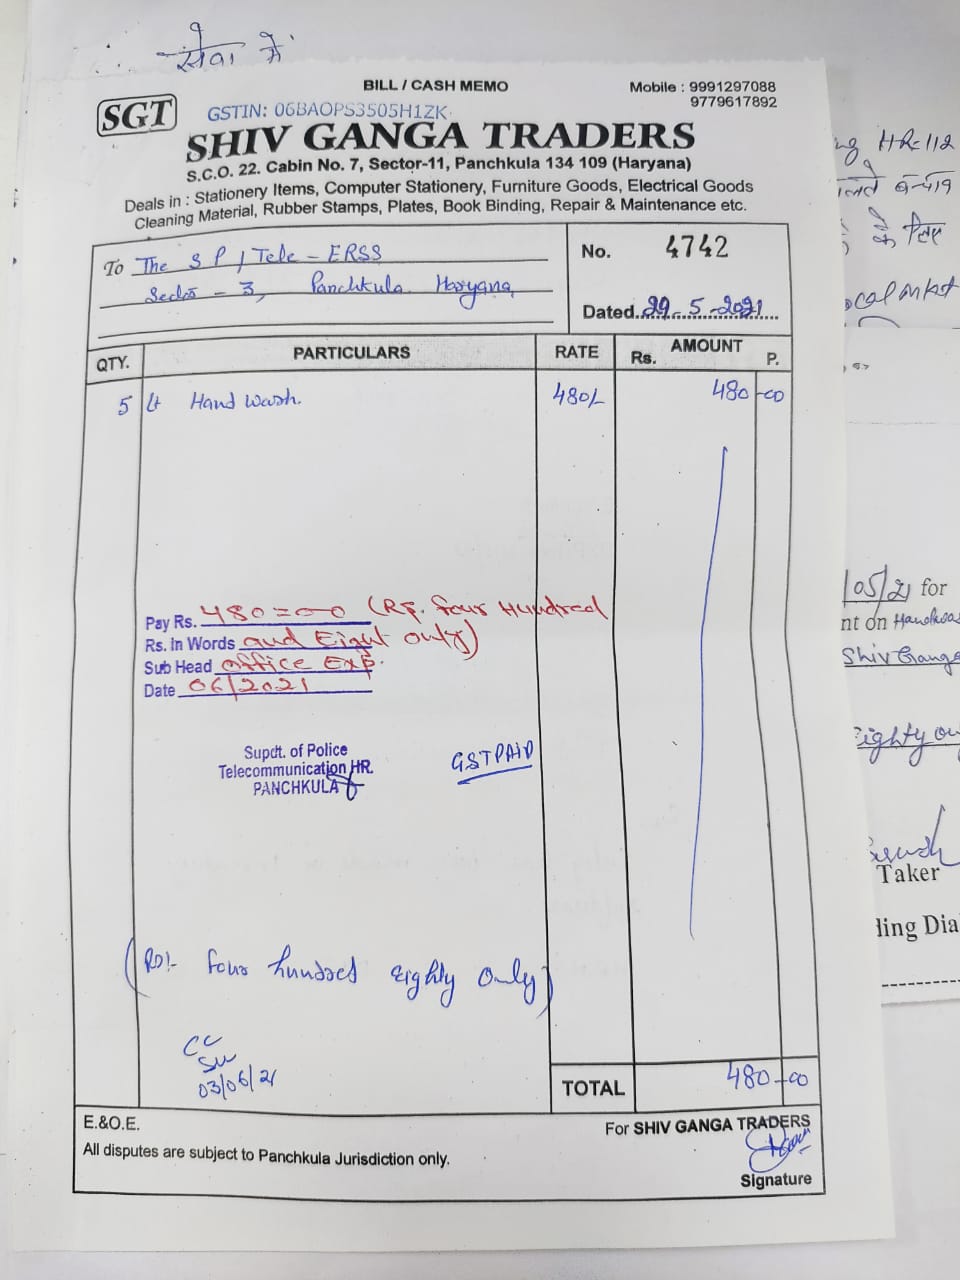 सेवा में
BILL / CASH MEMO
Mobile : 9991297088
9779617892
SGT
GSTIN: 06BAOPS3505H1ZK
SHIV GANGA TRADERS
S.C.O. 22. Cabin No. 7, Sector-11, Panchkula 134 109 (Haryana)
Deals in : Stationery Items, Computer Stationery, Furniture Goods, Electrical Goods
Cleaning Material, Rubber Stamps, Plates, Book Binding, Repair & Maintenance etc.
To The S P / Tele - ERSS
Sector - 3, Panchkula Haryana
No. 4742
Dated. 29-5-2021
QTY. PARTICULARS RATE AMOUNT
Rs. P.
5 Lt Hand Wash. 480/- 480-00
Pay Rs. 480=00 (Rs. four Hundred
Rs. In Words and Eight only)
Sub Head office Exp.
Date 06/2021
Supdt. of Police
Telecommunication HR.
PANCHKULA
GST PAID
(Rs/- four hundred Eighty Only)
CC
03/06/21
TOTAL 480-00
E.&O.E.
For SHIV GANGA TRADERS
All disputes are subject to Panchkula Jurisdiction only.
Signature
HR-112
के लिए
/05/21 for
nt on Handwas
Shiv Ganga
Eighty on
Taker
ling Dia